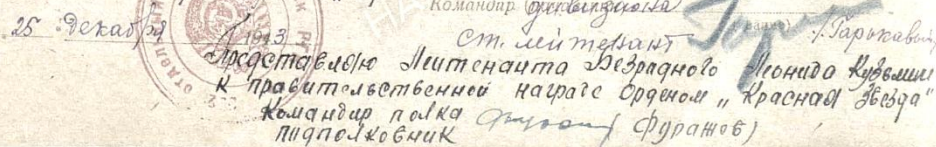 Командир дивизиона
25 декабря 1943 ст. лейтенант /Гарькавый/
Представляю Лейтенанта Безрадного Леонида Кузьмич
к правительственной награде Орденом „Красная Звезда"
Командир полка
подполковник (Фуражов)